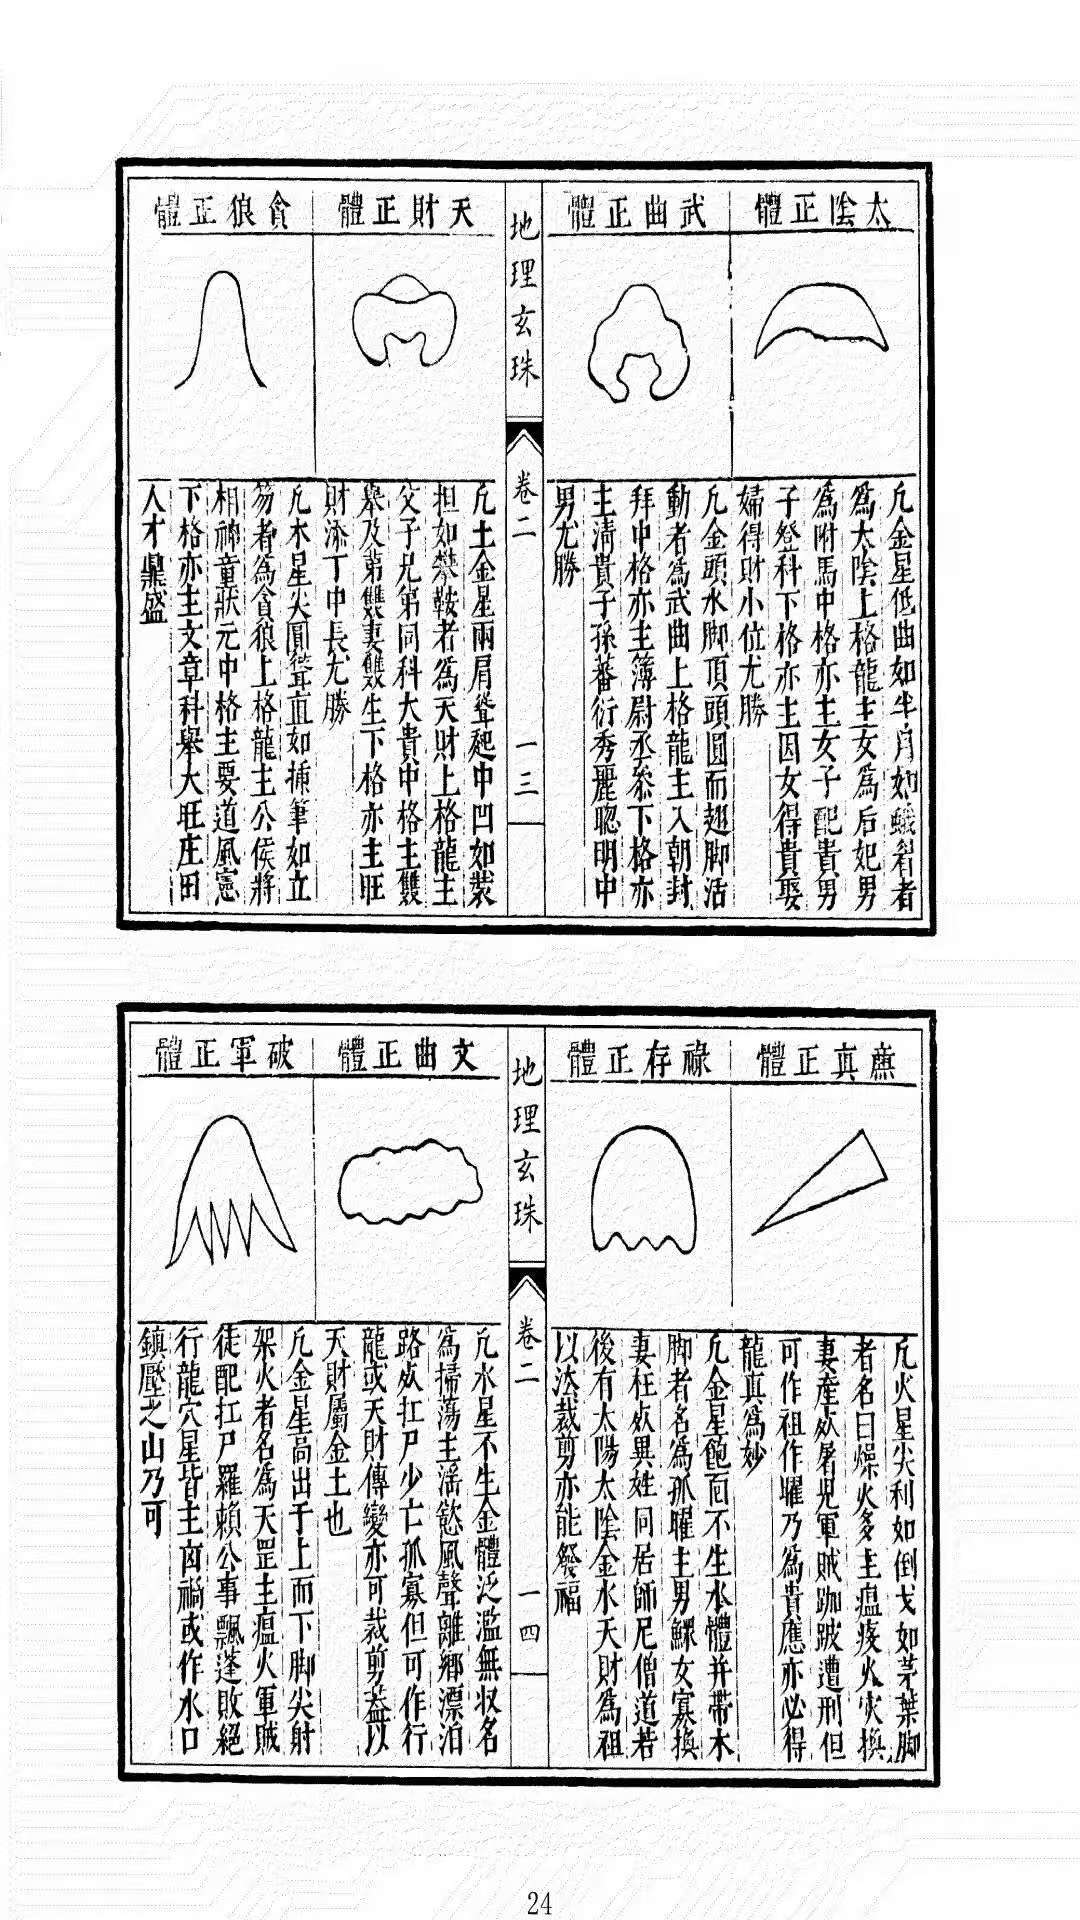 太陰正體
凡金星低曲如半月如蛾眉者
為太陰上格龍主女為后妃男
為附馬中格亦主女子配貴男
子登科下格亦主因女得貴娶
婦得財小位尤勝
武曲正體
凡金頭水脚頂頭圓而趐脚活
動者為武曲上格龍主入朝封
拜中格亦主簿尉丞叅下格亦
主清貴子孫蕃衍秀麗聰明中
男尤勝
地理玄珠
卷二
一三
天財正體
凡土金星兩肩聳起中凹如裝
担如攀鞍者為天財上格龍主
父子兄弟同科大貴中格主雙
舉及第雙妻雙生下格亦主旺
財添丁中長尤勝
貪狼正體
凡木星尖圓聳直如插筆如立
笏者為貪狼上格龍主公侯將
相神童狀元中格主要道風憲
下格亦主文章科舉大旺庄田
人才鼎盛
廉眞正體
凡火星尖利如倒戈如茅葉脚
者名曰燥火多主瘟㾗火灾換
妻產𣦸屠兇軍賊跏跛遭刑但
可作祖作曜乃為貴應亦必得
龍真為妙
祿存正體
凡金星飽而不生水體并帶木
脚者名為孤曜主男鰥女寡換
妻枉𣦸異姓同居師尼僧道若
後有太陽太陰金水天財為祖
以法裁剪亦能發福
地理玄珠
卷二
一四
文曲正體
凡水星不生金體泛濫無収名
為掃蕩主淫慾風聲離鄉漂泊
路𣦸扛尸少亡孤寡但可作行
龍或天財傳變亦可裁剪葢以
天財屬金土也
破軍正體
凡金星高出于上而下脚尖射
架火者名為天罡主瘟火軍賊
徒配扛尸羅賴公事飄蓬敗絕
行龍穴星皆主凶禍或作水口
鎮壓之山乃可
24